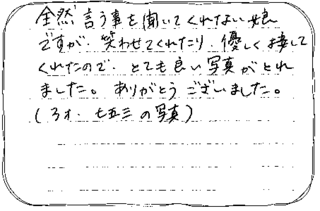 全然言う事を聞いてくれない娘
ですが、笑わせてくれたり、優しく接して
くれたので、とても良い写真がとれ
ました。ありがとうございました。
(3才・七五三の写真)